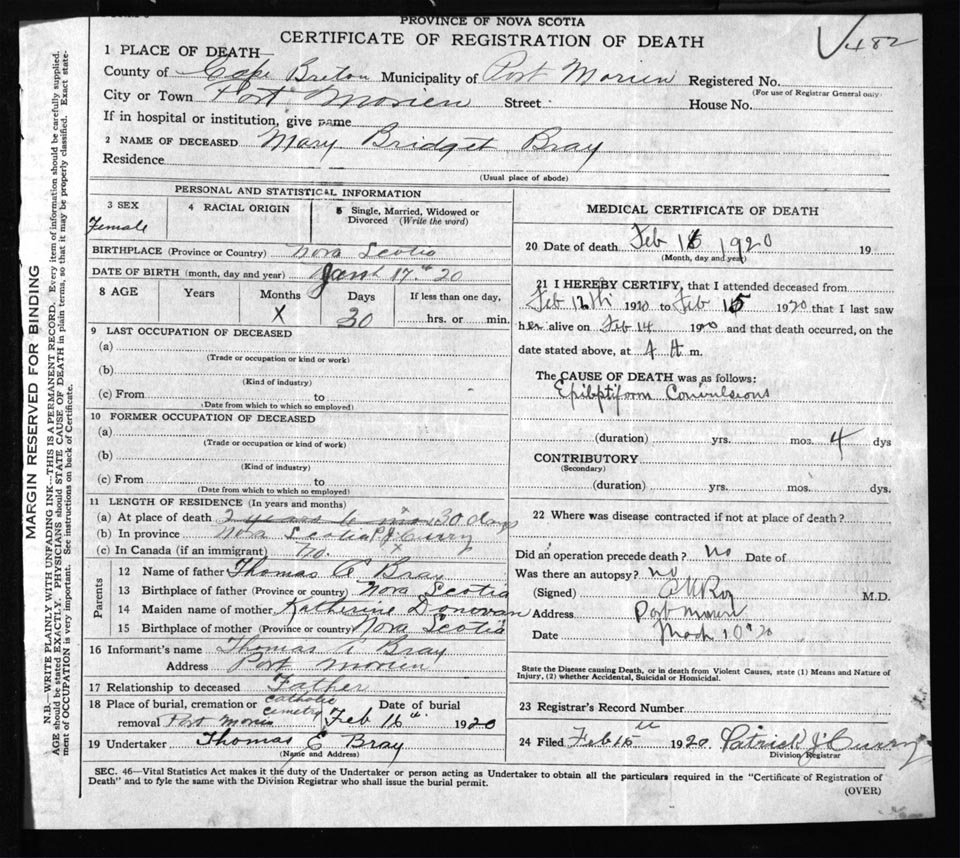 PROVINCE OF NOVA SCOTIA
CERTIFICATE OF REGISTRATION OF DEATH
482
1 PLACE OF DEATH
County of Cape Breton Municipality of Port Morien Registered No.
(For use of Registrar General only)
City or Town Port Morien Street House No.
If in hospital or institution, give name
2 NAME OF DECEASED Mary Bridget Bray
Residence
(Usual place of abode)
MARGIN RESERVED FOR BINDING
N.B.—WRITE PLAINLY WITH UNFADING INK—THIS IS A PERMANENT RECORD. Every item of information should be carefully supplied.
AGE should be stated EXACTLY. PHYSICIANS should STATE CAUSE OF DEATH in plain terms, so that it may be properly classified. Exact state-
ment of OCCUPATION is very important. See instructions on back of Certificate.
PERSONAL AND STATISTICAL INFORMATION
3 SEX 4 RACIAL ORIGIN 5 Single, Married, Widowed or
Divorced (Write the word)
Female
BIRTHPLACE (Province or Country) Nova Scotia
DATE OF BIRTH (month, day and year) Jan 17th 20
8 AGE Years Months Days If less than one day,
X 30 hrs. or min.
9 LAST OCCUPATION OF DECEASED
(a)
(Trade or occupation or kind or work)
(b)
(Kind of industry)
(c) From to
(Date from which to which so employed)
10 FORMER OCCUPATION OF DECEASED
(a)
(Trade or occupation or kind of work)
(b)
(Kind of industry)
(c) From to
(Date from which to which so employed)
11 LENGTH OF RESIDENCE (In years and months)
(a) At place of death 2 years 6 mos 30 days
(b) In province Nova Scotia P J Curry
(c) In Canada (if an immigrant) No. X
Parents
12 Name of father Thomas A Bray
13 Birthplace of father (Province or country) Nova Scotia
14 Maiden name of mother Katherine Donovan
15 Birthplace of mother (Province or country) Nova Scotia
16 Informant's name Thomas A Bray
Address Port Morien
17 Relationship to deceased Father
18 Place of burial, cremation or Catholic Date of burial
cemetry
removal Port Morien Feb 16th 1920
19 Undertaker Thomas E Bray
(Name and Address)
MEDICAL CERTIFICATE OF DEATH
20 Date of death Feb 15 1920 19
(Month, day and year)
21 I HEREBY CERTIFY, that I attended deceased from
Feb 12th 1920 to Feb 15 1920 that I last saw
her alive on Feb 14 1920 and that death occurred, on the
date stated above, at 4 A m.
The CAUSE OF DEATH was as follows:
Epileptiform Convulsions
(duration) yrs. mos. 4 dys
CONTRIBUTORY
(Secondary)
(duration) yrs. mos. dys.
22 Where was disease contracted if not at place of death?
Did an operation precede death? no Date of
Was there an autopsy? no
(Signed) M.D.
Address Port Morien
Date Mach 10th 20
State the Disease causing Death, or in death from Violent Causes, state (1) Means and Nature of
Injury, (2) whether Accidental, Suicidal or Homicidal.
23 Registrar's Record Number
24 Filed Feb 15 1920. Patrick J Curry
Division Registrar
SEC. 46—Vital Statistics Act makes it the duty of the Undertaker or person acting as Undertaker to obtain all the particulars required in the "Certificate of Registration of
Death" and to fyle the same with the Division Registrar who shall issue the burial permit.
(OVER)